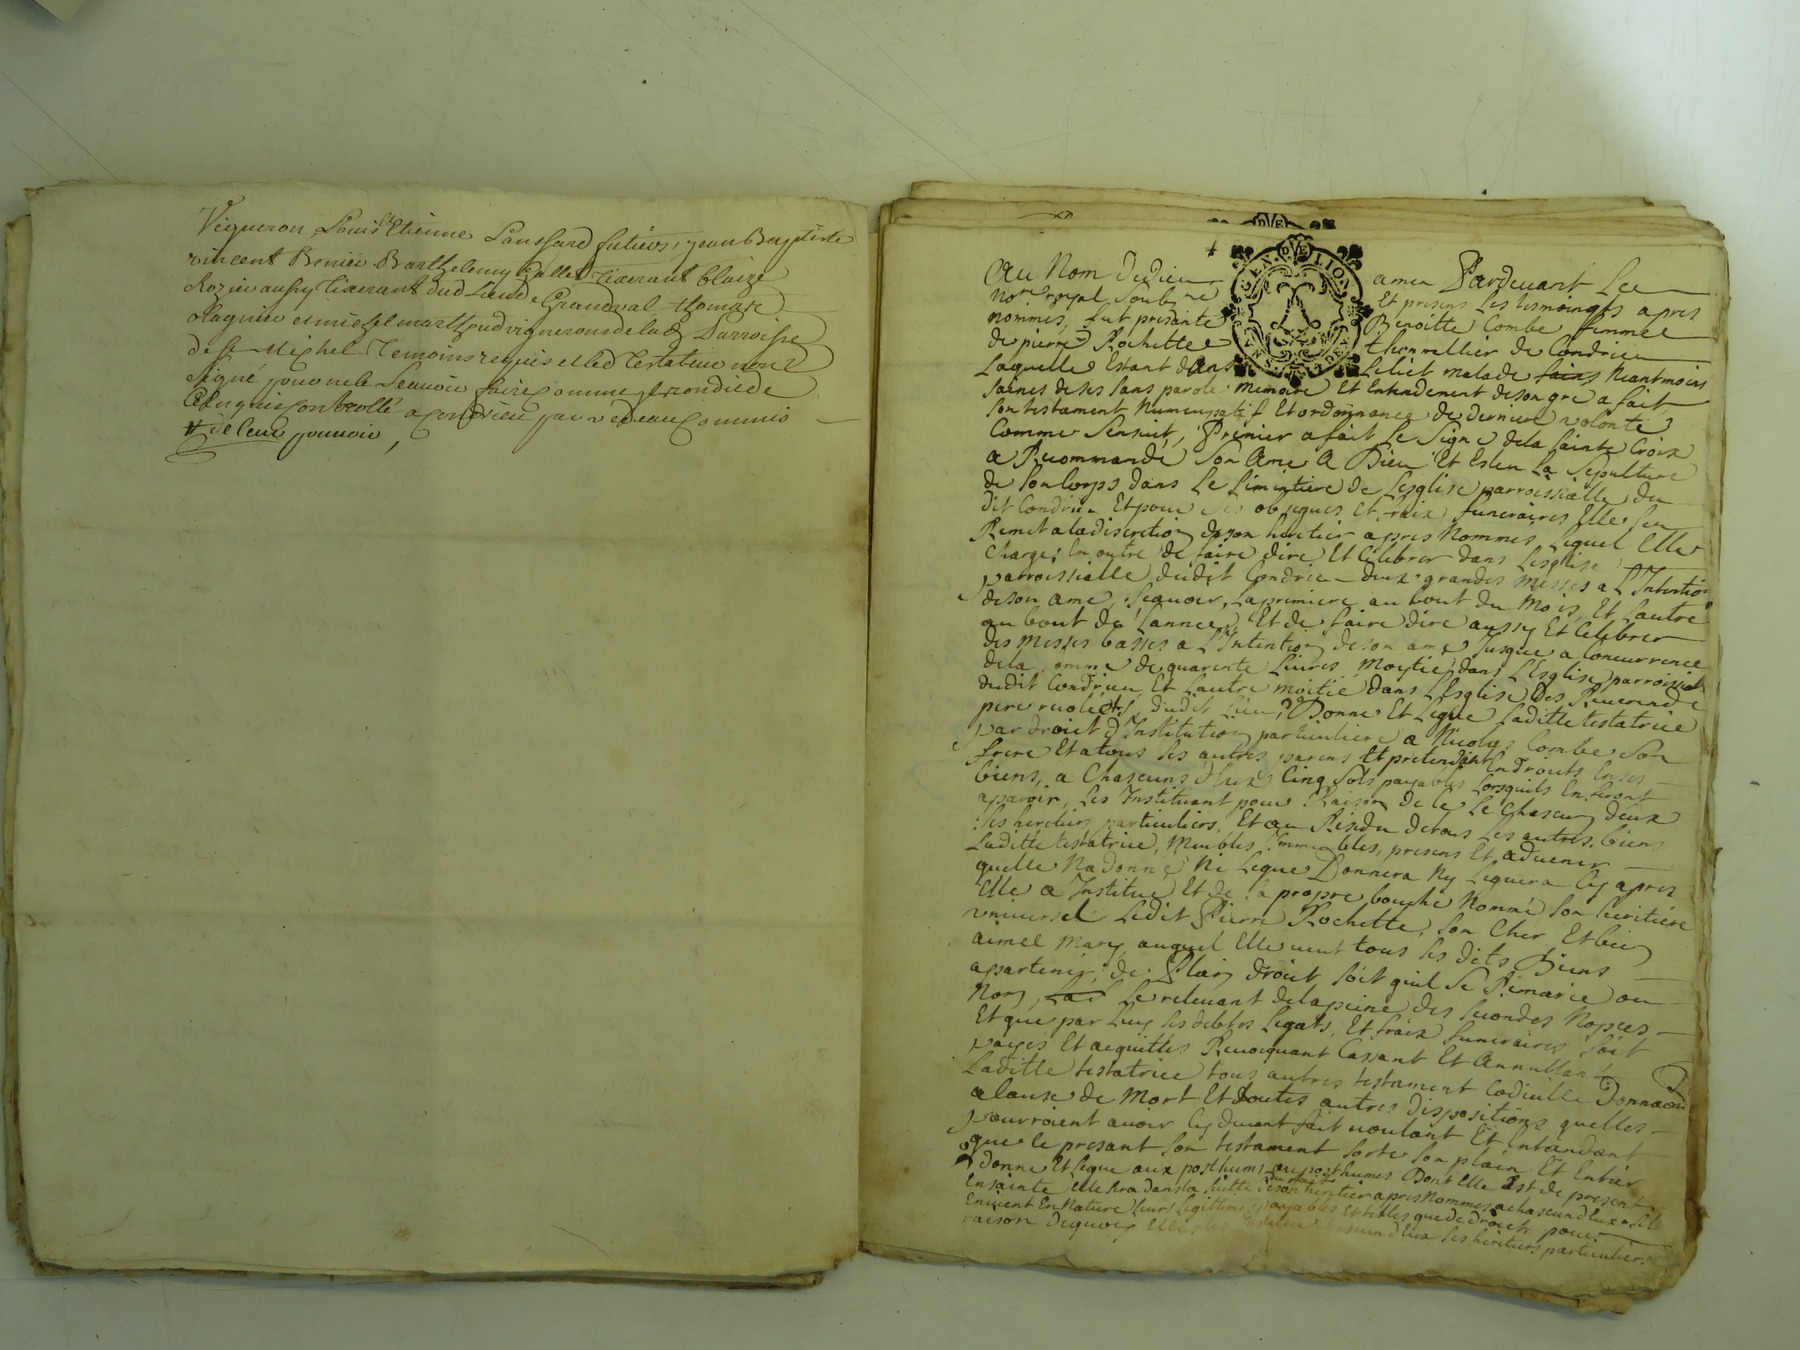 Vigneron Louis Etienne Panssard futiers, jean Baptiste
vincent Benier Barthelemy Gallet Tixerant Blaize
Rozier aussy Tixerant dud Lieu de Grandval thomas
Claquier et michel marthoud vignerons de lad parroisse
de st Michel Temoins requis et led Testateur nont
signé pour ne le scauoir faire comme ils ont dit de
Ce Enquis controllé a condrieu par vedeau Commis
# de leur pouuoir,
Au Nom de Dieu amen Pardeuant Le
Nore royal soubs.ne Et presens Les tesmoingts apres
nommés, fut presante Benoitte Combe femme
de pierre Rochette thonnellier de Condrieu
Laquelle Estant dans Le lict malade sains Neantmoins
saines de ses sans parole memoire Et Entendement de son gré a fait
son testament Nuncupatif Et ordonnance de derniere volonté
Comme sensuit, Premier a fait Le Signe de la sainte Croix
a Recommandé son Ame A Dieu Et Esleu La Sepulture
de son Corps dans Le Simintiere De Lesglise parroissialle du
dit Condrieu Et pour ses obseques Et fraix funeraires Elle sen
Remet a la discretion de son heritier apres Nommés, Lequel Elle
Charge; En outre de faire dire Et Celebrer dans Lesglise
parroissialle dudit Condrieu deux grandes Messes a L'Intention
de son ame, scauoir, La premiere au bout du Mois, Et Lautre
au bout de Lannee, Et de faire dire aussy Et Celebrer
des Messes basses a L'Intention de son ame Jusque a Concurrence
de la somme de quarente Liures, Moytié dans L'Esglise parroissial
dudit Condrieu Et Lautre moitié dans LEsglise Des Reuerende
pere recolets, dudit Lieu, Donne Et Legue Laditte testatrice
par droict D'Institution particuliere a Nicolas Combe son
frere Et a tous ses autres parens Et pretendant En droicts En ses
biens, a Chascuns d'Eux Cinq sols payables Lorsquils En feront
aparoir, Les Instituant pour Raison de ce Le Chascun deux
ses heritiers particuliers, Et au Residu de tous Les autres biens
Laditte testatrice, Meubles Immeubles, presens Et aduenir
quelle Na donné Ni Legué Donnera Ny Leguera Cy apres
Elle a Institué Et de sa propre bouche Nommé son heritiere
vniuersel Ledit Pierre Rochette, son Cher Et bien
aimel Mary auquel Elle veut tous ses dits Biens
appartenir de Plain droict soit quil se Remarie ou
Non, Lad Le releuant de la peine des secondes Nopces
Et que par Luy ses debtes Legats, Et fraix funeraires soit
payes Et acquittés Reuocquant Cassant Et Annullant
Laditte testatrice tous autres testament Codicille Donnaon
a Cause de Mort Et toutes autres dispositions quelles
pourroient auoir Cy deuant fait voulant Et Entandant
que le presant son testament sorte son plain Et Entier
donne Et Legue aux posthums ou posthumes Dont Elle Est de present
Ensainte Elle sera dans la suitte de son heritier apres Nommés a chascun d'Eux
En Nature Leurs Legitime payables Et telles que de droict, pour
raison dequoy Elle les Institue chascun d'Eux ses heritiers particuliers